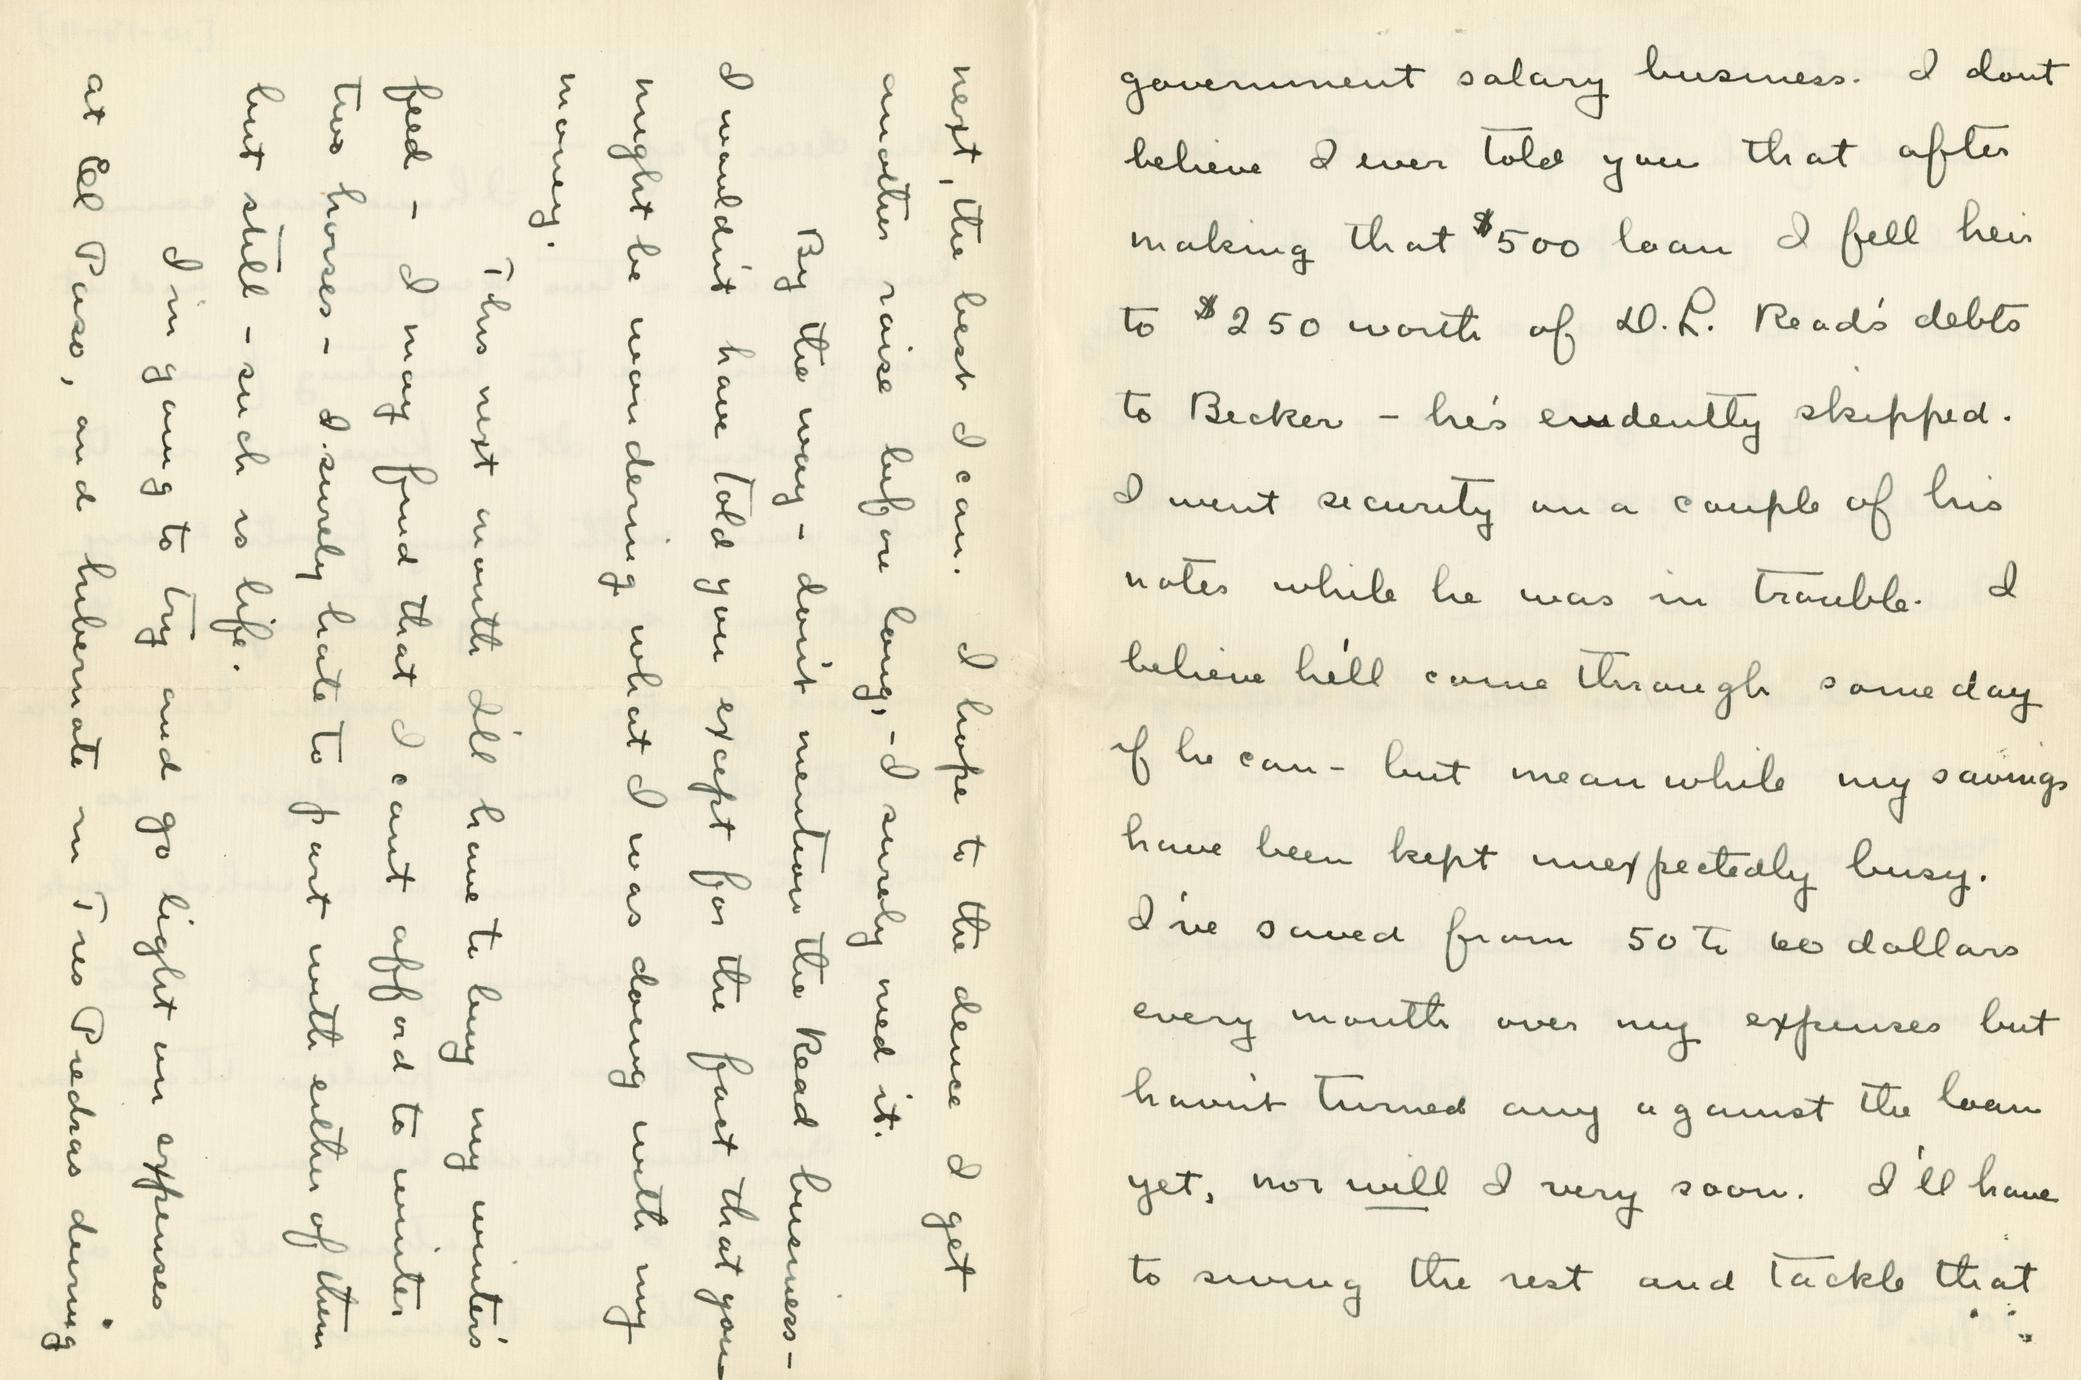 government salary business. I dont
believe I ever told you that after
making that $500 loan I fell heir
to $250 worth of D.L. Read's debts
to Becker – he's evidently skipped.
I went security on a couple of his
notes while he was in trouble. I
believe he'll come through some day
if he can – but meanwhile my savings
have been kept unexpectedly busy.
I've saved from 50 to 60 dollars
every month over my expenses but
havn't turned any against the loan
yet, nor will I very soon. I'll have
to swing the rest and tackle that
next, the best I can. I hope to the deuce I get
another raise before long, – I surely need it.
By the way – don't mention the Read business –
I wouldn't have told you except for the fact that you
might be wondering what I was doing with my
money.
This next month I'll have to buy my winter's
feed – I may find that I cant afford to winter
two horses – I surely hate to part with either of them
but still – such is life.
I'm going to try and go light on expenses
at El Paso, and hibernate in Tres Piedras during